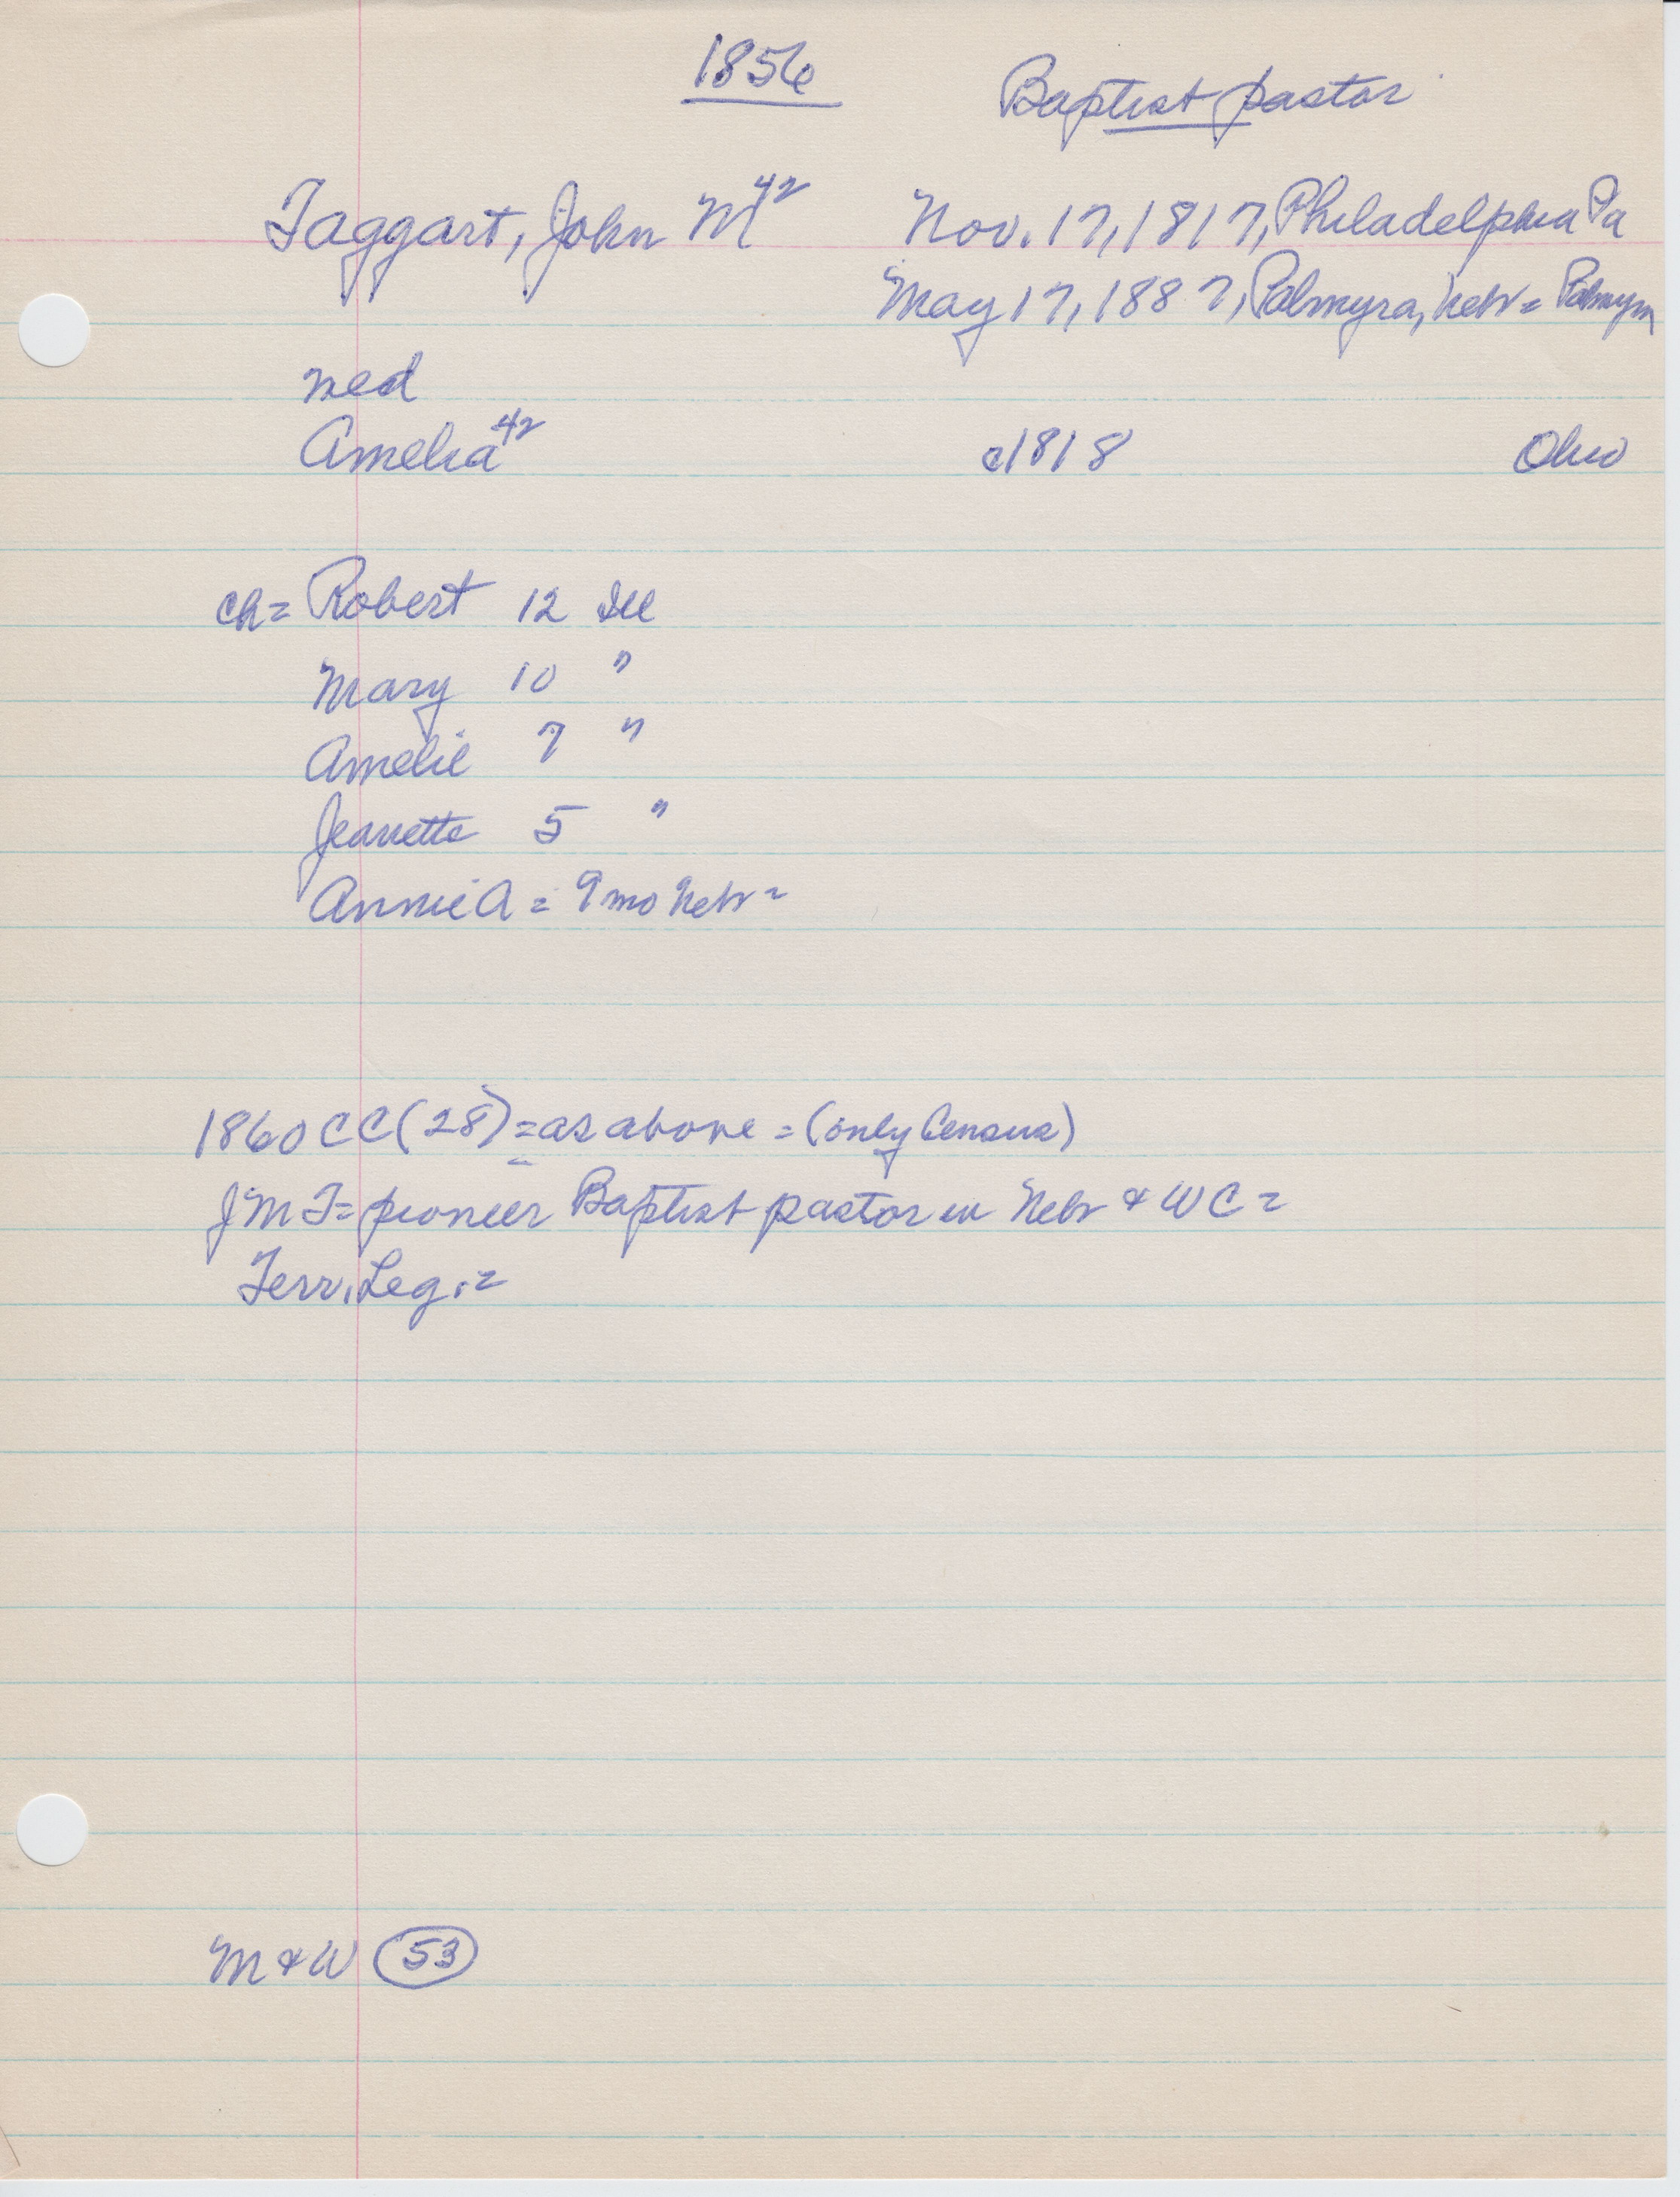 1856
Baptist pastor
Taggart, John M 42 Nov. 17, 1817, Philadelphia Pa
May 17, 1887, Palmyra, Nebr = Palmyra
med
Amelia 42 c1818 Ohio
ch = Robert 12 Ill
Mary 10 "
Amelie 7 "
Jeanette 5 "
Annie A = 9 mo Nebr =
1860 CC (28) = as above = (only Census)
JMT = pioneer Baptist pastor in Nebr & WC =
Terr. Leg. =
M & W 53